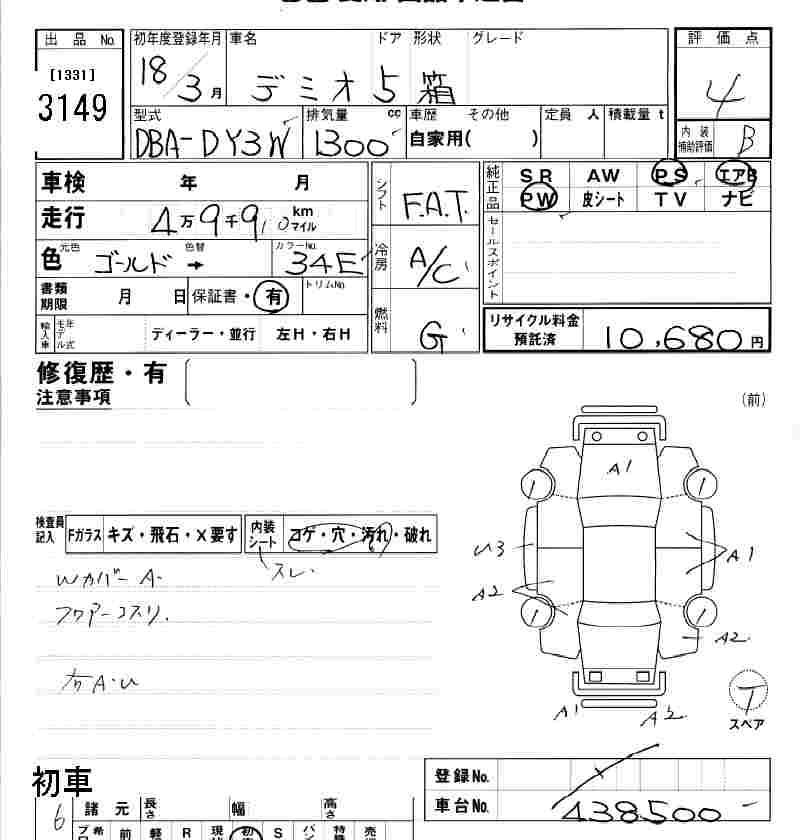 出品 No.
[1331]
3149
初年度登録年月 車名 ドア 形状 グレード
18/3月 デミオ 5 箱
型式 排気量 cc 車歴 その他 定員 人 積載量 t
DBA-DY3W 1300 自家用( )
評価点
4
内装補助評価 B
車検 年 月
走行 4万9千9,0 kmマイル
色 元色 色替 カラーNo.
ゴールド → 34E
書類期限 月 日 保証書・有 トリムNo.
輸入車 年式モデル ディーラー・並行 左H・右H
シフト F.A.T.
冷房 A/C
燃料 G
純正品 SR AW PS エアB
PW 皮シート TV ナビ
セールスポイント
リサイクル料金預託済 10,680円
修復歴・有
注意事項
(前)
検査員記入 Fガラス キズ・飛石・X要す 内装シート コゲ・穴・汚れ・破れ
スレ.
Wカバー A.
フロアーコスリ.
カA.U
A1
U3 A1
A2
A2
A1 A2
T
スペア
初車
登録No.
車台No. 438500
6 諸元 長さ 幅 高さ